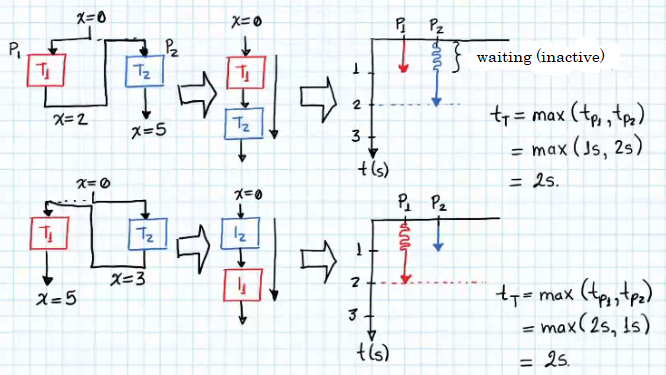 x=0
P1
T1
P2
T2
x=2
x=5
x=0
T1
T2
P1 P2
waiting (inactive)
1
2
3
t(s)
tT = max (tP1, tP2)
= max (1s, 2s)
= 2s.
x=0
T1
T2
x=5
x=3
x=0
I2
I1
P1 P2
1
2
3
t(s)
tT = max (tP1, tP2)
= max (2s, 1s)
= 2s.